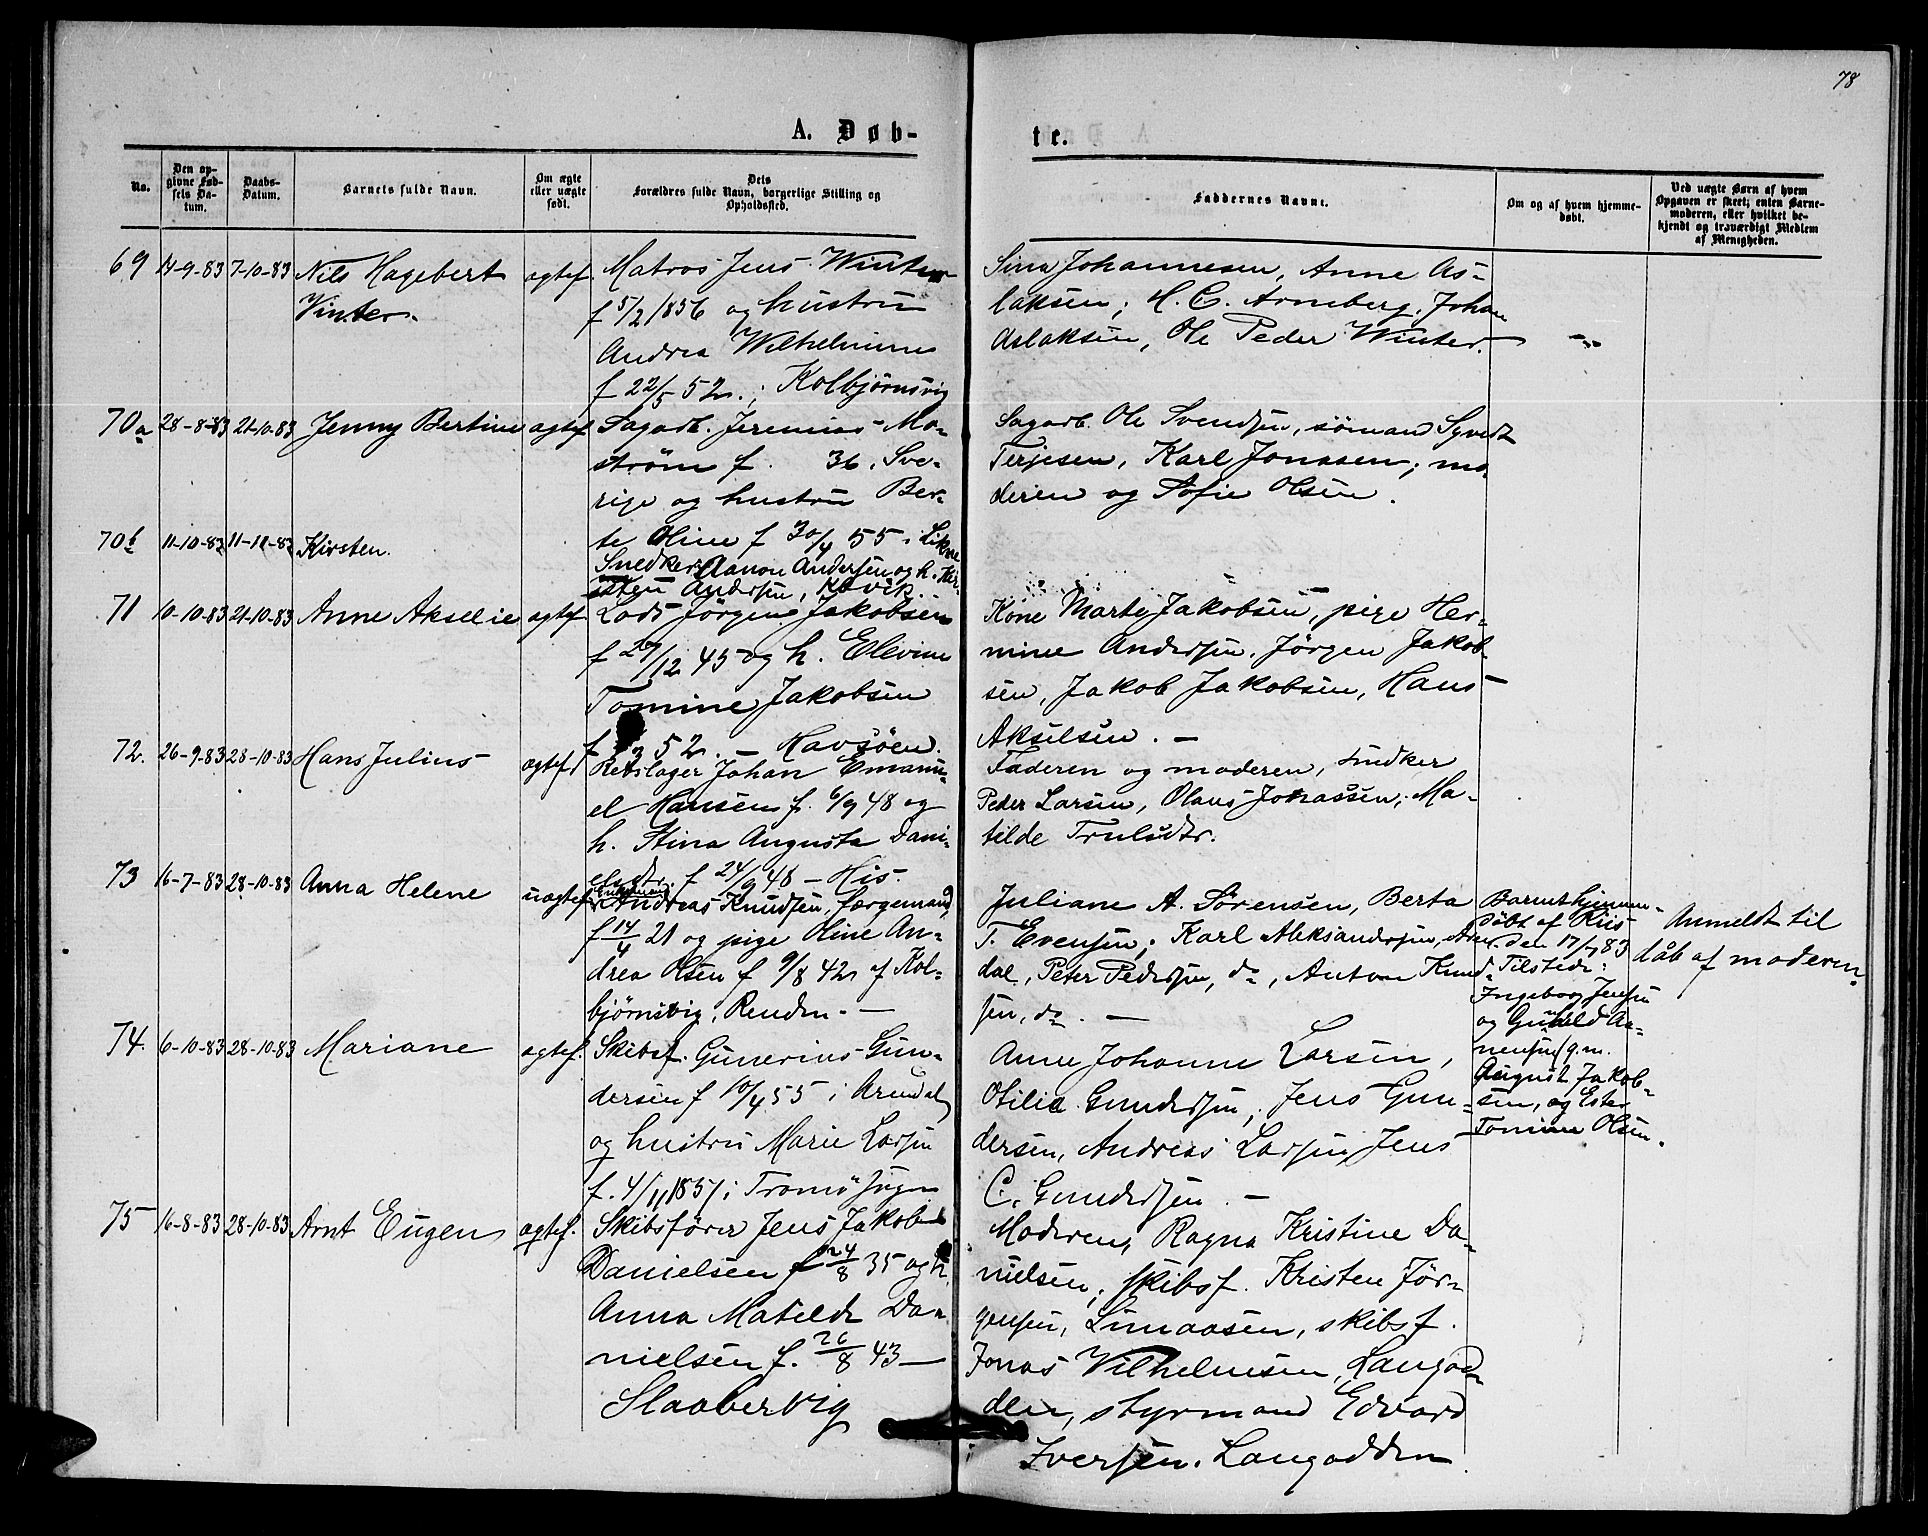 78
A. Døb-
te.
No.
Den op-
givne Fød-
sels Da-
tum.
Daabs-
Datum.
Barnets fulde Navn.
Om ægte
eller uægte
født.
Dets
Forældres fulde Navn, borgerlige Stilling og
Opholdssted.
Faddernes Navne.
Om og af hvem hjemme-
døbt.
Ved uægte Børn af hvem
Opgaven er skeet; enten Barne-
moderen, eller hvilket be-
kjendt og troværdigt Medlem
af Menigheden.
69 14-9-83 7-10-83 Nils Hagebert
Vinter.
ægtef.
Matros Jens Winter
f 5/2 1856 og hustru
Andrea Wilhelmine
f 22/5 52.; Kolbjørnsvig
Sina Johannesen, Anne As-
laksen; H. C. Arneberg, Johan
Aslaksen, Ole Peder Winter.
70a 28-8-83 21-10-83 Jenny Bertine ægtef
Sagarb. Jeremias Mo-
strøm f. 36, Sve-
rige og hustru Ber-
te Oline f 30/4 55.
Sagarb. Ole Svendsen, sömand Syvert
Terjesen, Karl Jonasen; mo-
deren og Sofie Olsen.
70b 11-10-83 11-11-83 Kirsten.
Snedker Aanon Andersen og h. Kir-
sten Andersen,
71 10-10-83 21-10-83 Anne Akselie ægtef
Lods Jörgen Jakobsen
f 27/12 45 og h. Elevine
Tomine Jakobsen
f 52. — Havsöen.
Kone Marte Jakobsen, pige Her-
mine Andersen, Jörgen Jakob-
sen, Jakob Jakobsen, Hans
Akselsen. —
72. 26-9-83 28-10-83 Hans Julius ægtef
Rebslager Johan Emanu-
el Hansen f. 6/9 48 og
h. Stina Augusta Dani-
elsdtr. f 24/9 48 — His.
Faderen og moderen, snedker
Peder Larsen, Olaus Jonassen, Ma-
tilde Trulsdtr.
73 16-7-83 28-10-83 Anna Helene uægtef
Andreas Knudsen, færgemand,
f 14/4 21 og pige Oline An-
drea Olsen f 9/8 42 af Kol-
björnsvig, Renden. —
Juliane A. Sörensen, Berta
T. Evensen; Karl Aleksandersen, Aren-
dal, Peter Pedersen, do, Anton Knud-
sen, do. —
Barnet hjemme-
döbt af Riis
den 17/7 83
Tilstede:
Ingeborg Jensen
og Gunild Aa-
nensen g.m.
August Jakob-
sen, og Ester
Tomine Olsen.
Anmeldt til
dåb af moderen.
74. 6-10-83 28-10-83 Mariane ægtef.
Skibsf. Gunerius Gun-
dersen f 10/4 55 i Arendal
og hustru Marie Larsen
f. 4/11 1857 i Tromö sogn
Anne Johanne Larsen,
Otilia Gundersen, Jens Gun-
dersen, Andreas Larsen, Jens
C. Gundersen. —
75 16-8-83 28-10-83 Arnt Eugen ægtef.
Skibsförer Jens Jakob
Danielsen f 24/8 35 og h.
Anna Matilde Da-
nielsen f. 26/8 43 —
Slaabervig
Moderen, Ragna Kristine Da-
nielsen; skibsf. Kristen Jör-
gensen, Limaasen, skibsf.
Jonas Vilhelmsen, Langod-
den, styrmand Edvard
Iversen. Langodden